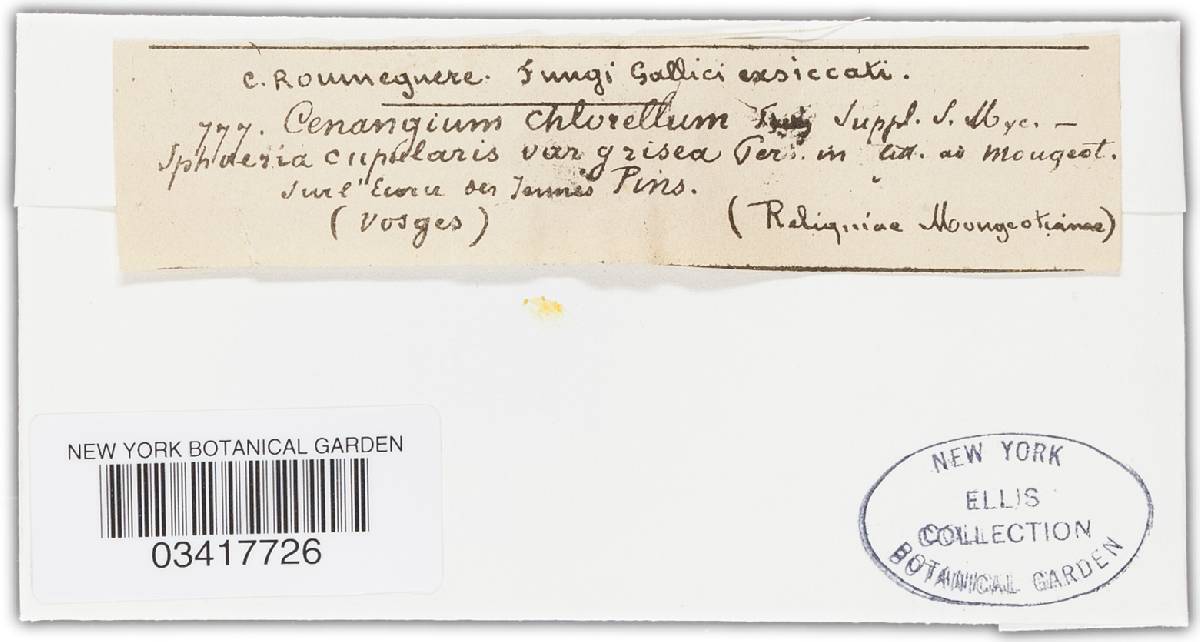 C. Roumeguere. Fungi Gallici exsiccati.
777. Cenangium chlorellum Suppl. S. Myc. –
Sphaeria cupularis var grisea Pers. in litt. ad Mougeot.
Sur l'Ecorce des Jeunes Pins.
(Vosges) (Reliquiae Mougeotianae)
NEW YORK BOTANICAL GARDEN
03417726
NEW YORK
ELLIS
COLLECTION
BOTANICAL GARDEN